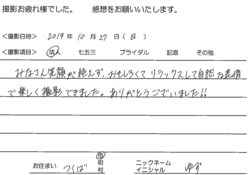 撮影お疲れ様でした。 感想をお願いいたします。
撮影日時 2019年 10月 27日 (日)
<撮影項目> 成人 七五三 ブライダル 記念 その他
みなさん笑顔が絶えず、おもしろくて リラックスして自然な表情
で楽しく撮影できました。ありがとうございました!!
お住まい つくば 市町村 ニックネーム イニシャル ゆず